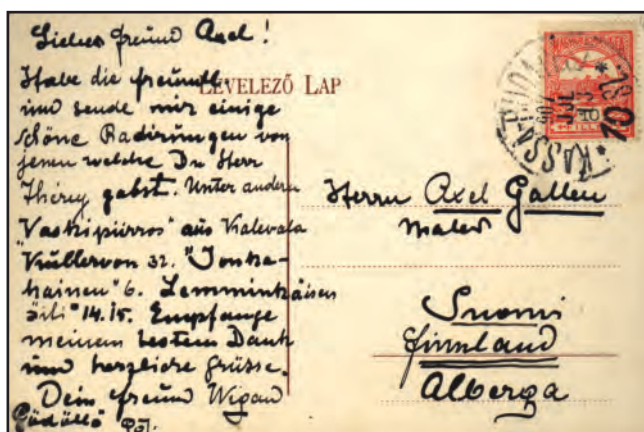 Lieber freund Axel!
Habe die freundl.
und sende mir einige
schöne Radirungen von
jenen welche Du Herr
Théreÿ gabst. Unter andern
Vaskipiirros" aus Kalevala
"Kullervon 32. "Jouka-
hainen" 6. Lemminkäisen
äiti" 14.15. Empfange
meinen besten Dank
und herzliche grüsse.
Dein freund Wigand
Gödöllő 907.
LEVELEZŐ LAP
KASSA
907
JUL
10
FILLÉR
Herrn Axel Gallen
Maler
Suomi
finnland
Alberga